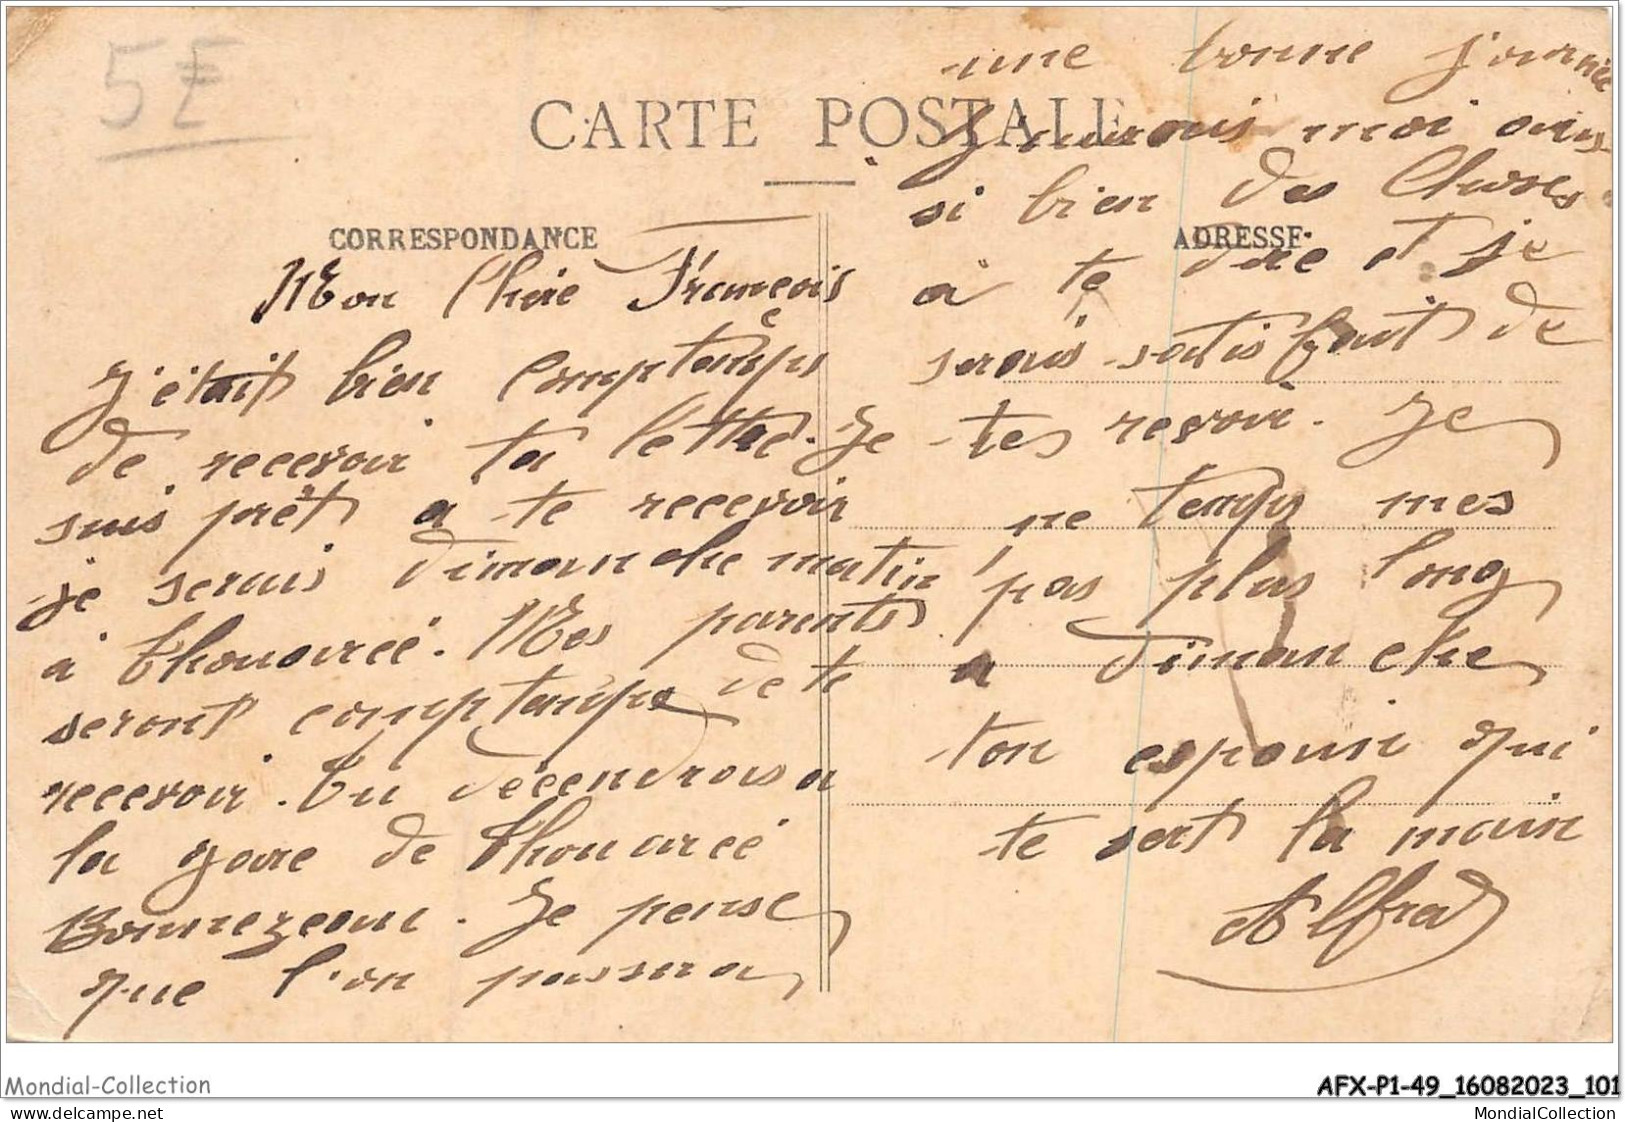 5E
CARTE POSTALE
CORRESPONDANCE
ADRESSE
Mon Chère François
J'était bien comptemps
de recevoir ta lettre. Je
suis prêt a te recevoir
je serais dimanche matin
à Thouarcé. Mes parents
seront comptemps de te
recevoir. Tu décendrais a
la gare de Thouarcé
Bonnezeaux. Je pense
que l'on passera
une bonne journée
J'aurais moi aus
si bien des Choses
à te dire et je
serais satisfait de
tes revoir. Je
ne temps mes
pas plus long
a Dimanche
ton espouir qui
te sert la main
Alfred
Mondial-Collection
AFX-P1-49_16082023_101
www.delcampe.net
MondialCollection